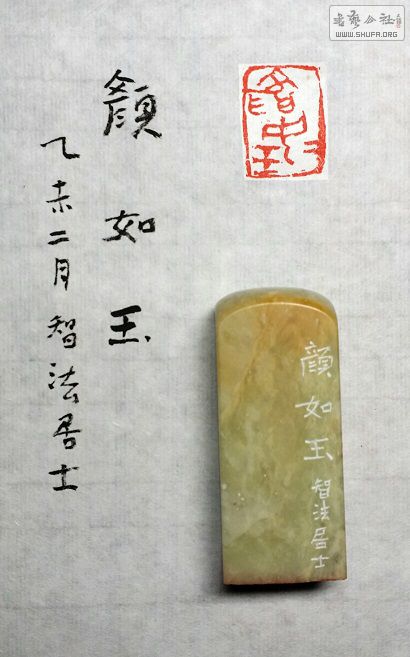 颜如玉
乙未二月智法居士
颜如玉
智法居士
书艺公社
WWW.SHUFA.ORG